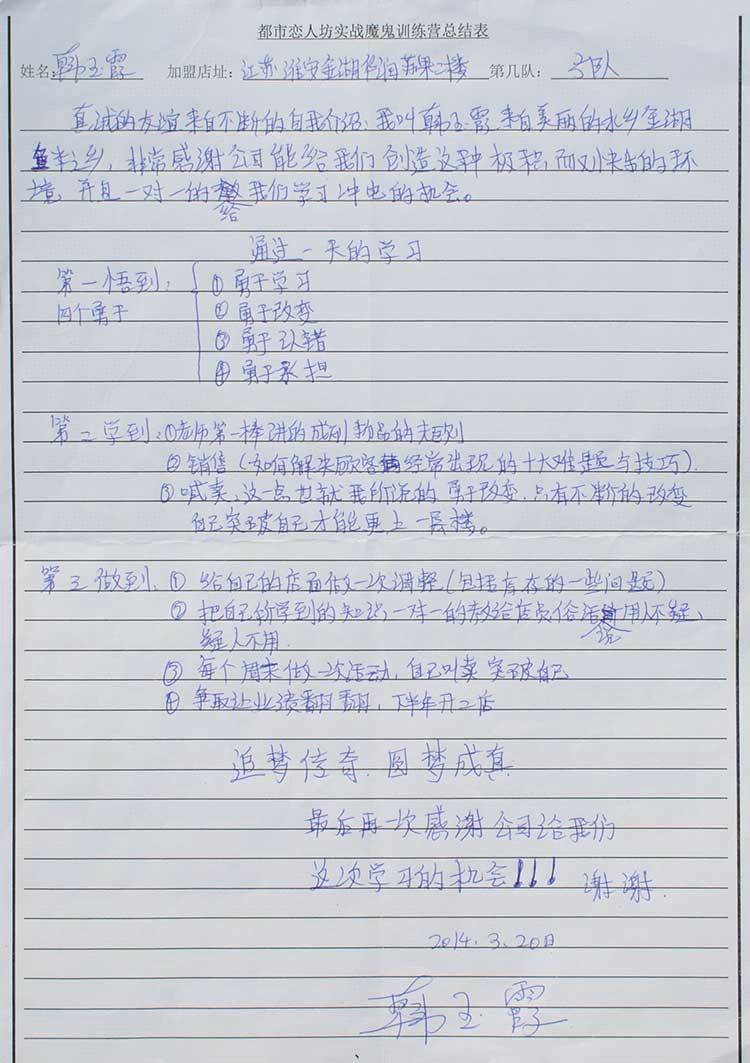 都市恋人坊实战魔鬼训练营总结表
姓名:韩玉霞 加盟店址:江苏淮安金湖华润苏果二楼 第几队: 3队
真诚的友谊来自不断的自我介绍:我叫韩玉霞 来自美丽的水乡金湖
鱼米之乡,非常感谢公司能给我们创造这种极积而又快乐的环
境 并且一对一的给我们学习冲电的机会。
通过一天的学习
第一悟到: ①勇于学习
四个勇于 ②勇于改变
③勇于认错
④勇于承担
第二学到:①老师第一棒讲的成列 物品的规则
②销售(如何解决顾客经常出现的十大难题与技巧).
③喊卖,这一点也就我所说的 勇于改变,只有不断的改变
自己突破自己才能更上一层楼。
第三做到:① 给自己的店面做一次调整(包括库存的一些问题)
② 把自己所学到的知识一对一的教给店员 俗话说用人不疑,
疑人不用.
③ 每个周末做一次活动,自己叫卖 突破自己
④ 争取让业绩翻翻,下半年开二店
追梦传奇.圆梦成真
最后再一次感谢公司给我们
这次学习的机会!!! 谢谢.
2014.3.20日
韩玉霞